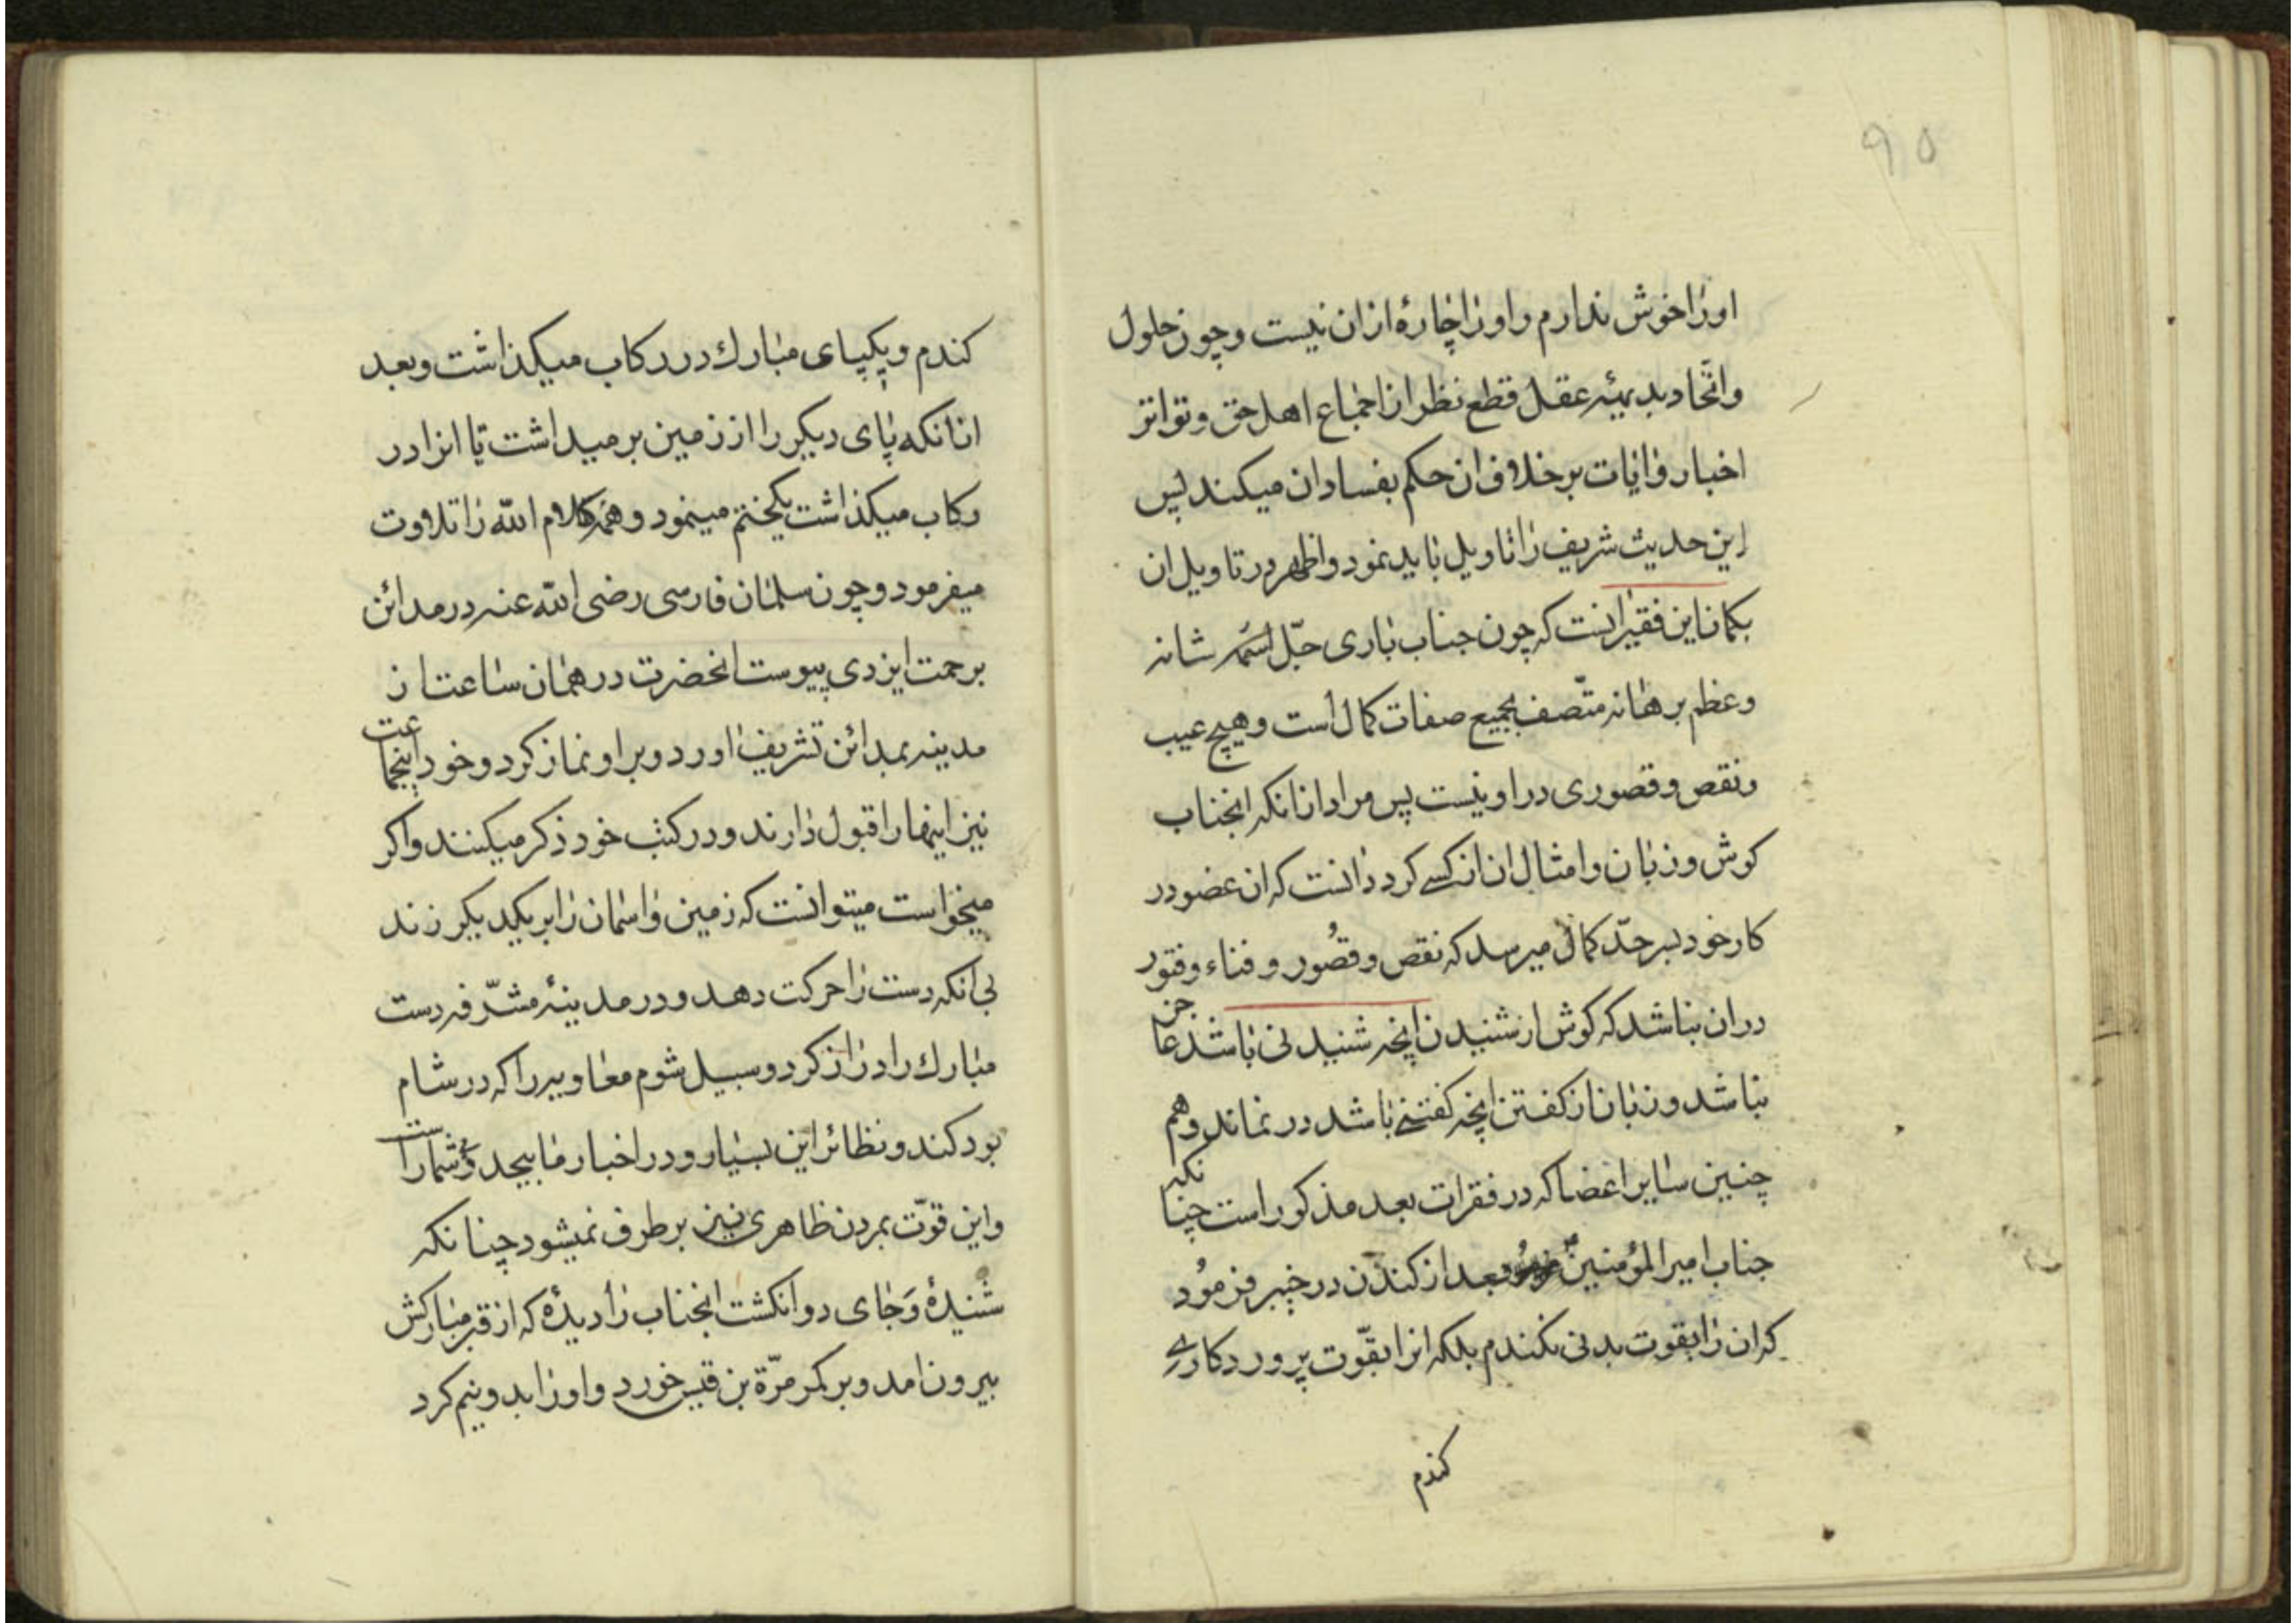 ۹۵
اورا خوش ندارم و اورا چارهٔ ازان نیست و چون حلول
و اتّحاد ببدیهیّهٔ عقل قطع نظر از اجماع اهل حق و تواتر
اخبار و ایات بر خلاف ان حکم بفساد ان میکند پس
این حدیث شریف را تاویل باید نمود و اظهر در تاویل ان
بکمان این فقیر انست که چون جناب باری جلّ اسمه شانه
و عظم برهانه متّصف بجمیع صفات کمال است و هیچ عیب
و نقص و قصوری در او نیست پس مراد از انکه انجناب
کوش و زبان و امثال ان انکسی کردد انست که ان عضو در
کار خود بسر حدّ کمال میرسد که نقص و قصُور و فناء و فتور
دران نباشد که کوش از شنیدن انچه شنیدنی باشد عاجز
نباشد و زبان از کفتن انچه کفتنی باشد در نماند و هم
چنین سایر اعضا که در فقرات بعد مذکور است چنانکه
جناب امیر المؤمنین بعد از کندن در خیبر فرمُود
که ان را بقوت بدنی نکندم بلکه انرا بقوّت پروردکاری
کندم
کندم و یکپای مبارك در رکاب میکذاشت و بعد
از انکه پای دیکر را از زمین بر میداشت تا انرا در
رکاب میکذاشت یکختم مینمود و همه کلام الله را تلاوت
میفرمود و چون سلمان فارسی رضی الله عنه در مدائن
برحمت ایزدی پیوست انحضرت در همان ساعت از
مدینه بمدائن تشریف اورد و بر او نماز کرد و خود اینجماعت
نیز اینها را قبول دارند و در کتب خود ذکر میکنند و اکر
میخواست میتوانست که زمین و اسمان را بر یکدیکر زند
بی انکه دست را حرکت دهد و در مدینهٔ مشرّفه دست
مبارك را دراز کرد و سبیل شوم معاویه را که در شام
بود کند و نظائر این بسیار و در اخبار ما بیحد و شمار است
و این قوّت بمردن ظاهری نیز بر طرف نمیشود چنانکه
شنیدهٔ وَ جای دو انکشت انجناب را دیدهٔ که از قبر مبارکش
بیرون امد و بر کمر مرّة بن قیس خورد و اورا بدو نیم کرد